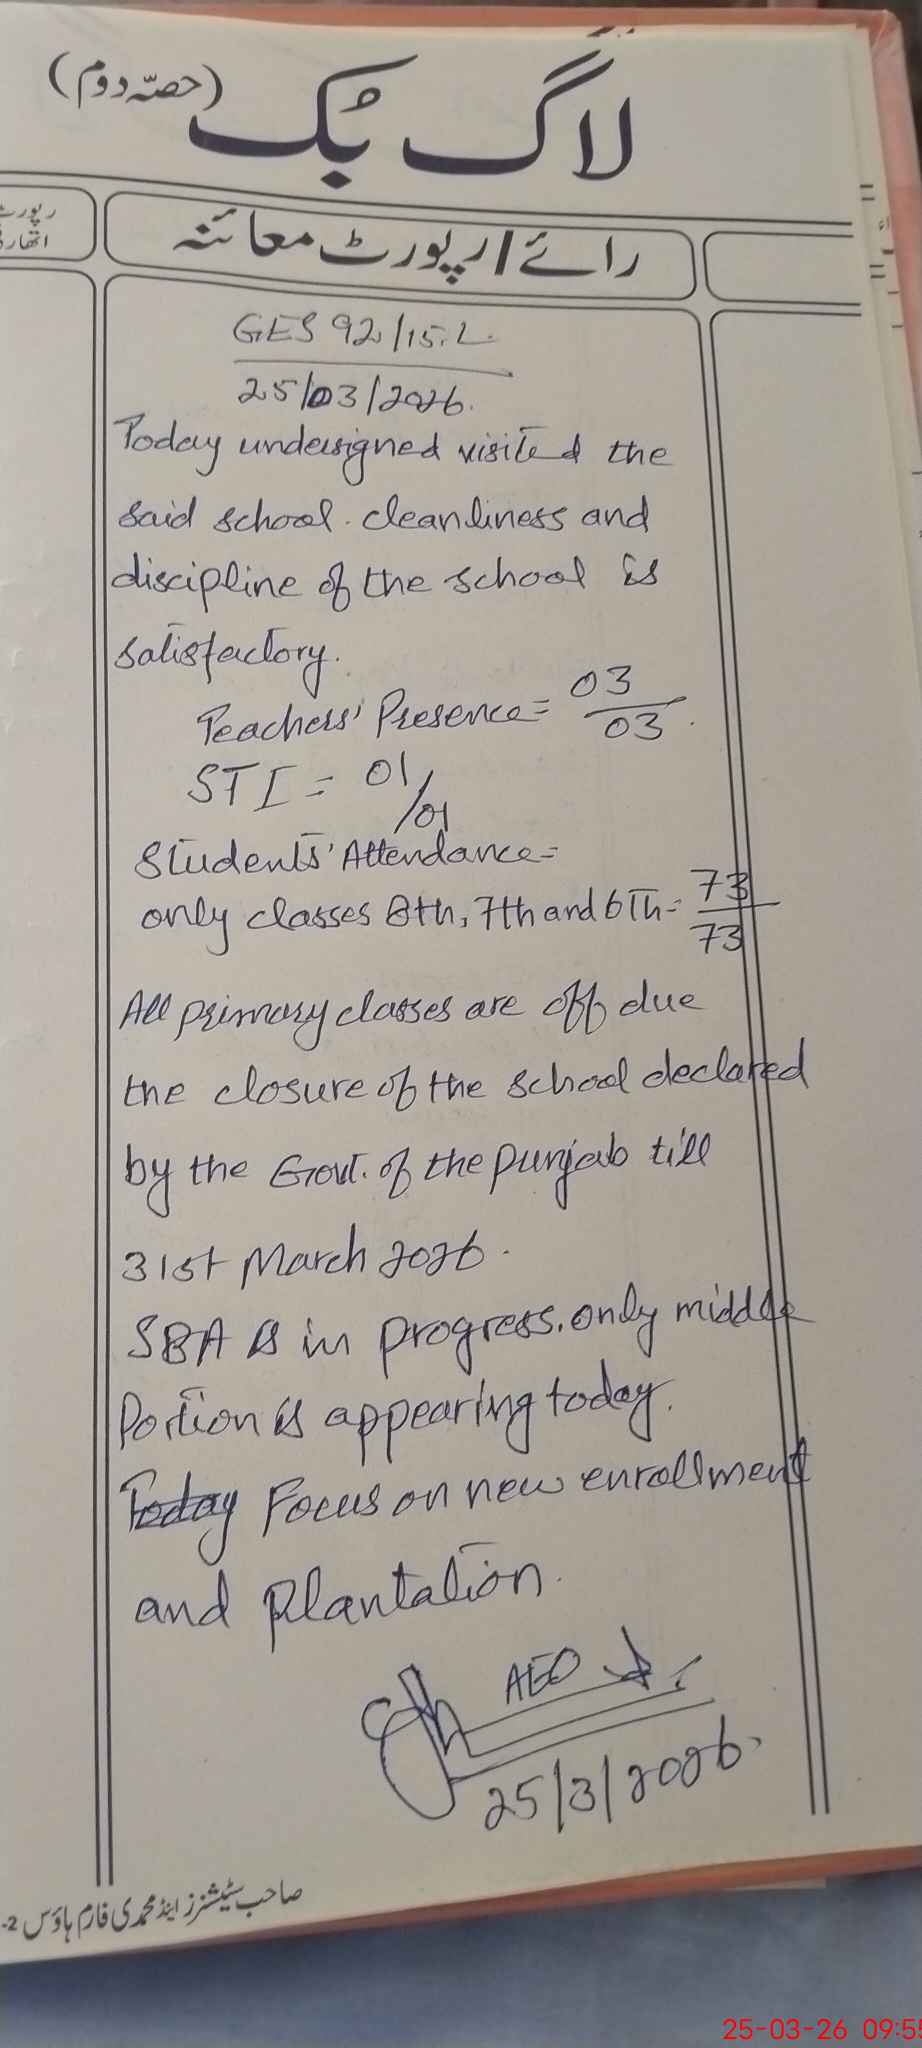 لاگ بُک (حصّہ دوم)
رپورٹ
رائے/رپورٹ معائنہ
GES 92/15.L.
25/03/2026.
Today undersigned visited the
said school. cleanliness and
discipline of the school is
satisfactory.
Teachers' Presence = 03/03.
STI = 01/01
Students' Attendance =
only classes 8th, 7th and 6th = 73/73
All primary classes are off due
the closure of the school declared
by the Govt. of the punjab till
31st March 2026.
SBA is in progress. only middle
Portion is appearing today.
Today Focus on new enrollment
and Plantation.
AEO
25/3/2026.
صاحب سٹیشنرز اینڈ محمدی فارم ہاؤس 2-
25-03-26 09:55